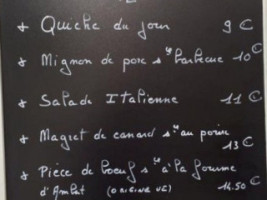 + Quiche du jour 9 €
+ Mignon de porc sce barbecue 10 €
+ Salade Italienne 11 €
+ Magret de canard sce au poivre
13 €
+ Pièce de boeuf sce à la fourme
d'Ambert (ORIGINE UE) 14.50 €